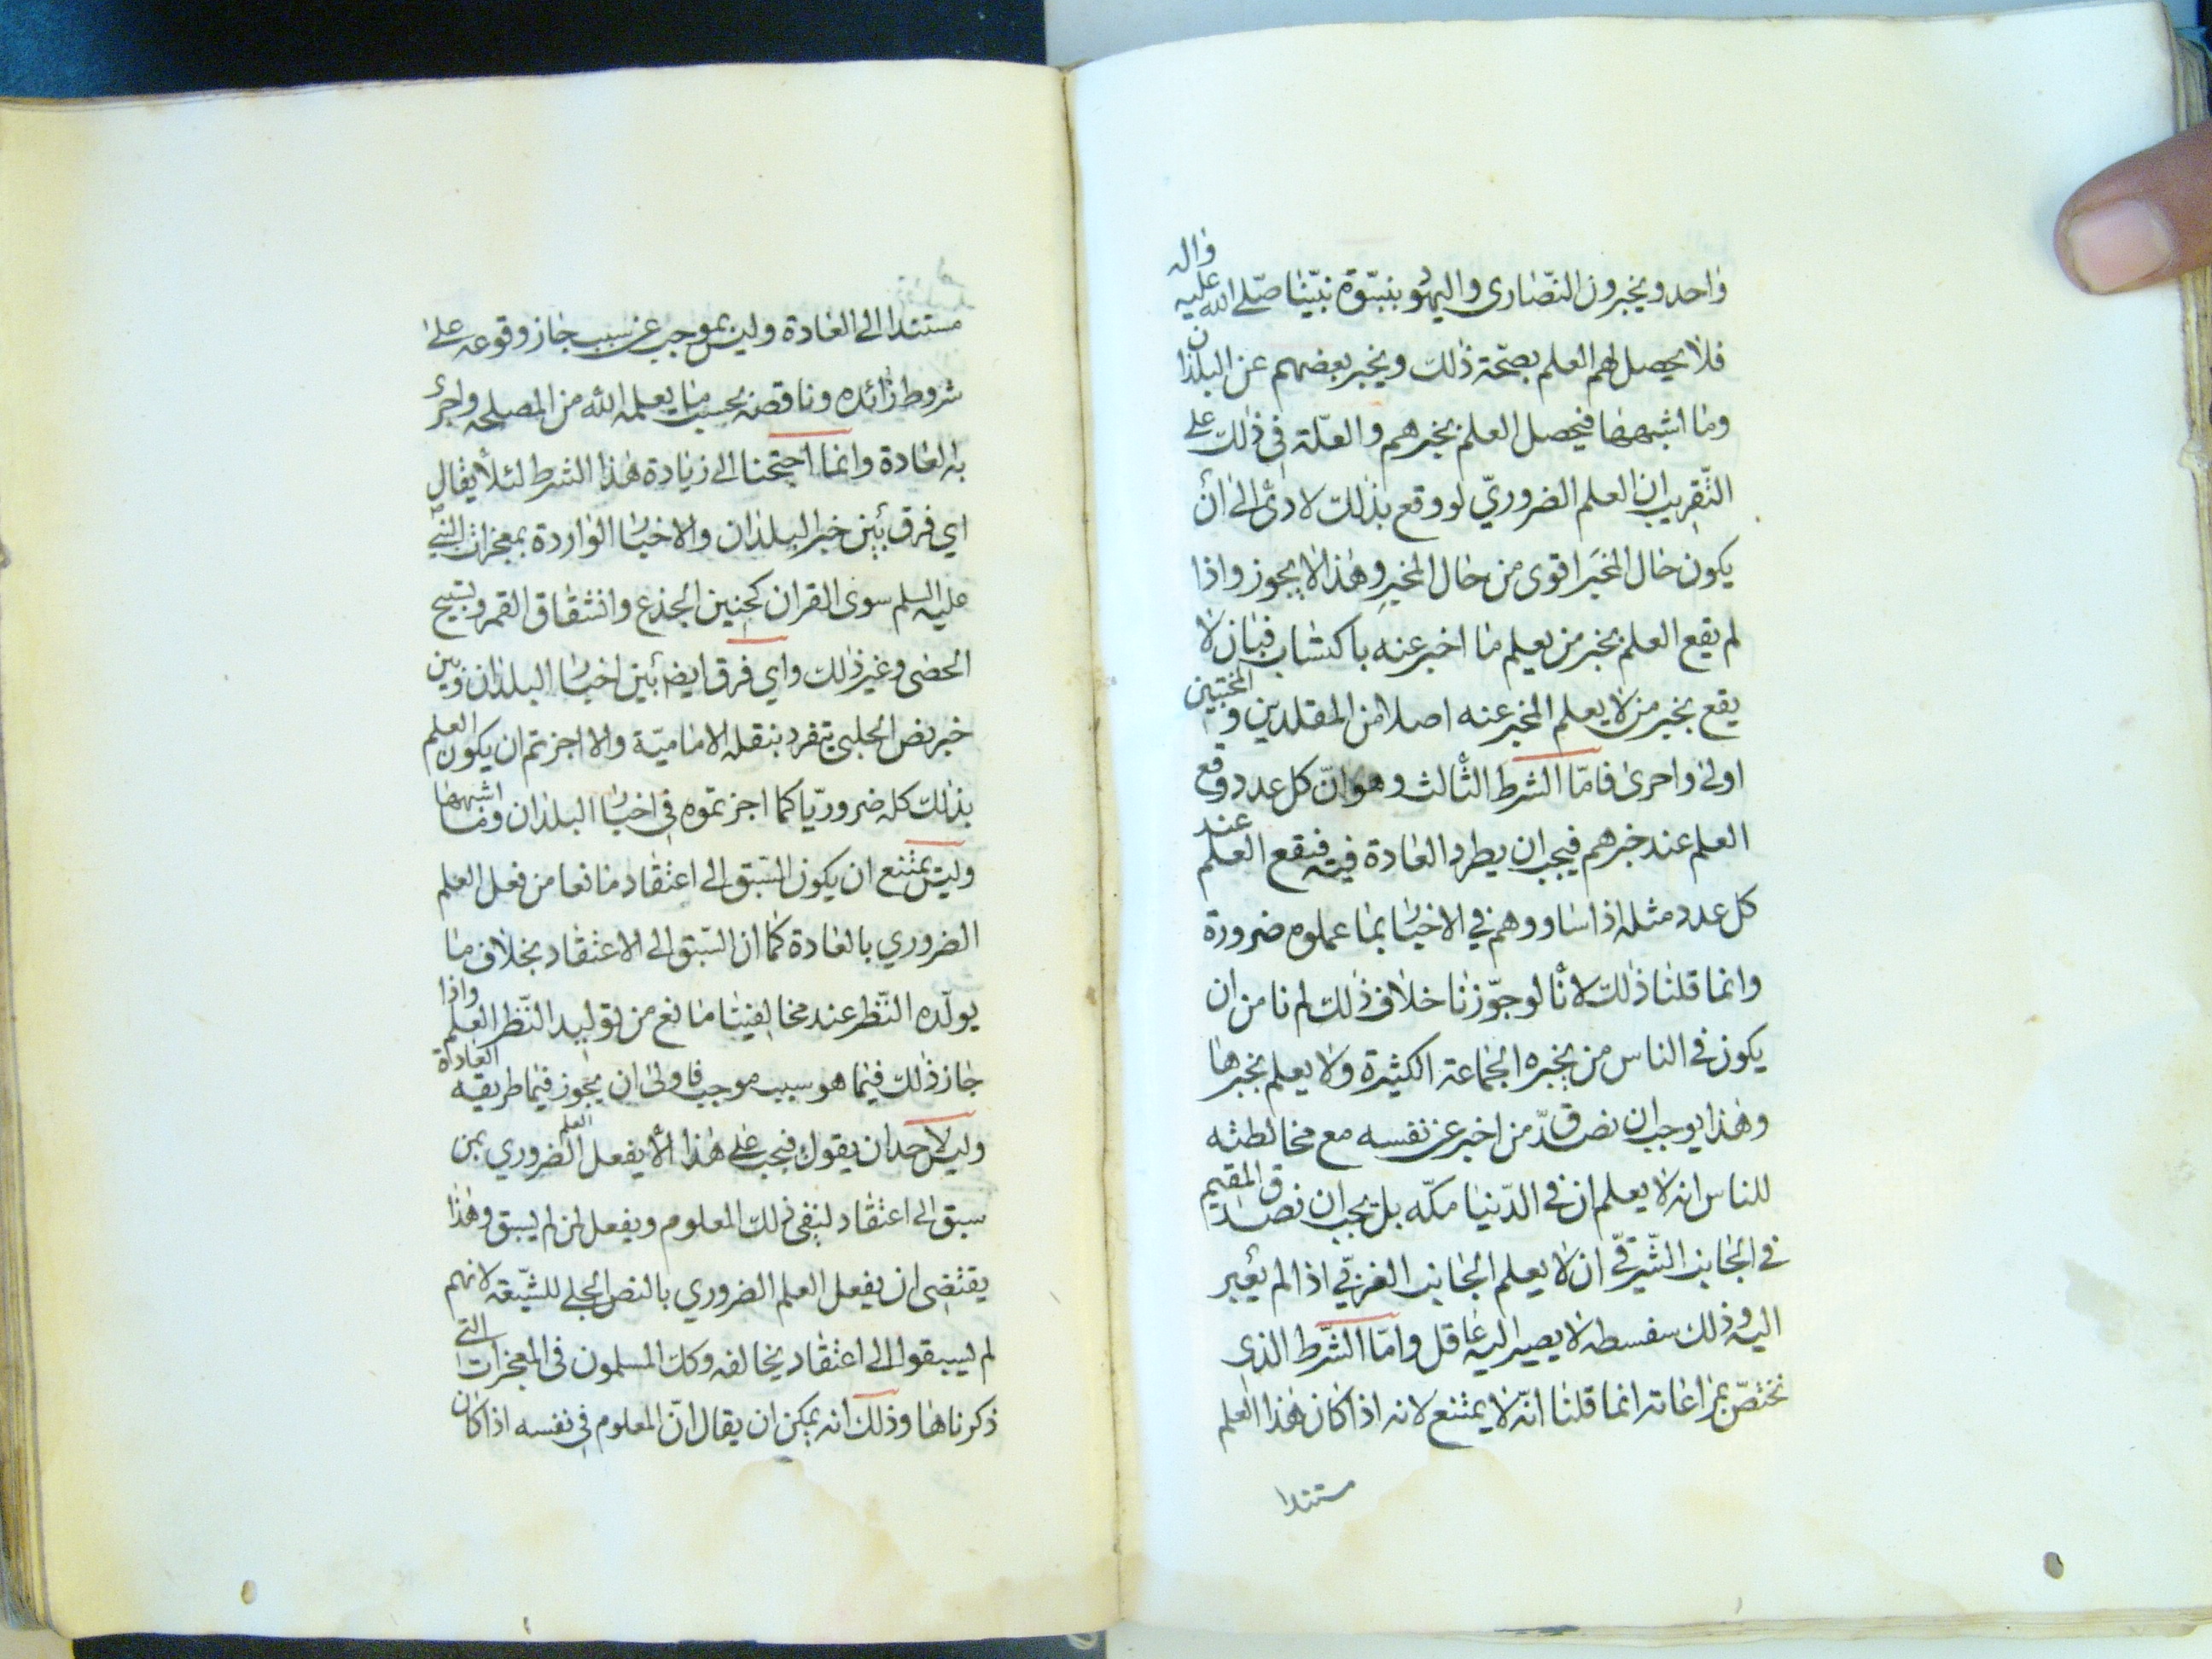 واحد ويخبرون النّصارى واليهود بنبوّة نبيّنا صلّى الله عليه واله
فلا يحصل لهم العلم بصحّة ذلك ويخبر بعضهم عن البلدان
وما اشبهها فيحصل العلم بخبرهم والعلّة في ذلك على
التّقريب ان العلم الضروريّ لو وقع بذلك لادى الى ان
يكون حال المخبَر اقوى من حال المخبِر وهذا لا يجوز واذا
لم يقع العلم بخبر من يعلم ما اخبر عنه باكتساب فبان لا
يقع بخبر من لا يعلم المخبر عنه اصلا من المقلدين و المختبين
اولى واحرى فامّا الشرط الثالث وهو انّ كل عدد وقع
العلم عند خبرهم فيجب ان يطرد العادة فيه فيقع العلم عند
كل عدد مثله اذا ساووهم في الاخبار بما عملوه ضرورة
وانما قلنا ذلك لانّا لو جوّزنا خلاف ذلك لم نامن ان
يكون في الناس من يخبره الجماعة الكثيرة ولا يعلم بخبرها
وهذا يوجب ان نصدّق من اخبر عن نفسه مع مخالطته
للناس انه لا يعلم ان في الدّنيا مكّه بل يجب ان نصدق المقيم
في الجانب الشّرقيّ ان لا يعلم الجانب الغربيّ اذا لم يعبر
اليه وذلك سفسطه لا يصير اليه عاقل وامّا الشّرط الذي
نختصّ بمراعاته انما قلنا انّه لا يمتنع لانه اذا كان هذا العلم
مستندا
مستندا الى العادة وليس بموجب عن سبب جاز وقوعه على
شروط زائده وناقصة بحسب ما يعلمه الله من المصلحه واجرى
به العادة وانما احتجنا الى زيادة هذا الشرط لئلا يقال
اي فرق بين خبر البلدان والاخبار الواردة بمعجزات النبي
عليه السلم سوى القران كحنين الجذع وانشقاق القمر وتسبيح
الحصى وغير ذلك واي فرق ايضا بين اخبار البلدان وبين
خبر نص الجلي يتفرد بنقله الاماميّة والا اجزتم ان يكون العلم
بذلك كله ضروريّا كما اجزتموه في اخبار البلدان وما اشبهها
وليس بمتنع ان يكون السّبق الى اعتقاد مانعا من فعل العلم
الضروري بالعادة كما ان السّبق الى الاعتقاد بخلاف ما
يولّده النّظر عند مخالفينا مانع من توليد النّظر العلم واذا
جاز ذلك فيما هو سبب موجب فاولى ان يجوز فيما طريقه العاداة
وليس لاحد ان يقول فيجب على هذا الّا يفعل العلم الضروري بمن
سبق الى اعتقاد لنفي ذلك المعلوم ويفعل لمن لم يسبق وهذا
يقتضى ان يفعل العلم الضروري بالنص الجلي للشّيعة لانهم
لم يسبقوا الى اعتقاد يخالفه وكك المسلمون في المعجزات التي
ذكرناها وذلك انه يمكن ان يقال انّ المعلوم في نفسه اذا كان